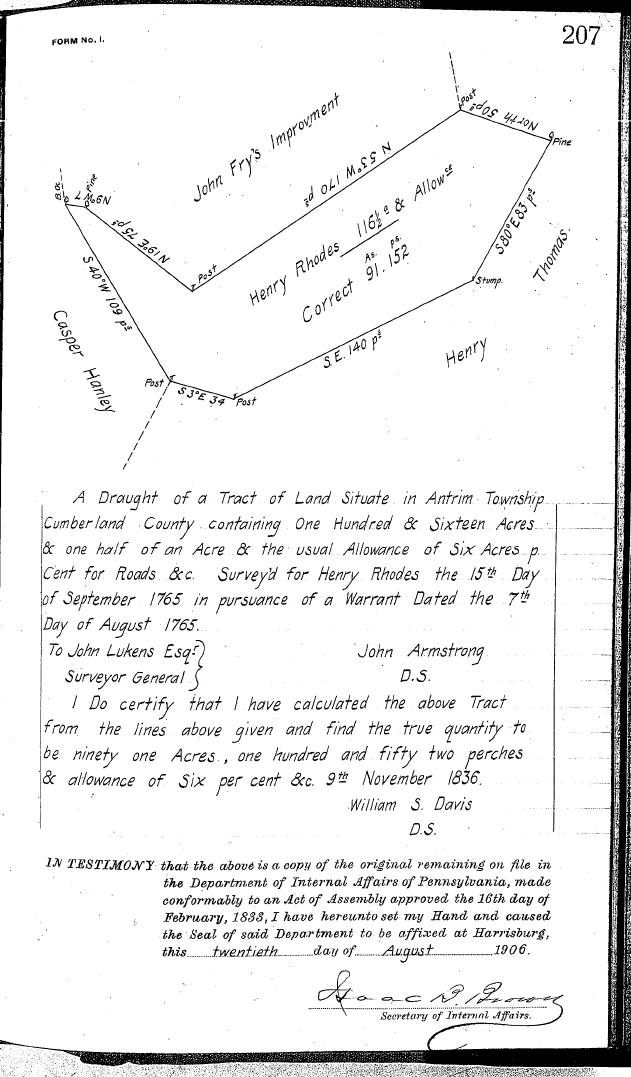 FORM No. I.
207
Post
North 50 ps
Pine
John Fry's Improvment
N 53° W 170 ps
B.O.
Pine
N 9° W 7
N 19° E 75 ps
Post
Henry Rhodes 116½ a & Allowse
As. ps.
Correct 91.152
S 80° E 83 ps
Thomas
S 40° W 109 ps
Stump.
Casper Hanley
S.E. 140 ps
Henry
Post
S 3° E 34
Post
A Draught of a Tract of Land Situate in Antrim Township
Cumberland County containing One Hundred & Sixteen Acres
& one half of an Acre & the usual Allowance of Six Acres p
Cent for Roads &c. Survey'd for Henry Rhodes the 15th Day
of September 1765 in pursuance of a Warrant Dated the 7th
Day of August 1765.
To John Lukens Esqr } John Armstrong
Surveyor General } D.S.
I Do certify that I have calculated the above Tract
from the lines above given and find the true quantity to
be ninety one Acres, one hundred and fifty two perches
& allowance of Six per cent &c. 9th November 1836.
William S. Davis
D.S.
IN TESTIMONY that the above is a copy of the original remaining on file in
the Department of Internal Affairs of Pennsylvania, made
conformably to an Act of Assembly approved the 16th day of
February, 1833, I have hereunto set my Hand and caused
the Seal of said Department to be affixed at Harrisburg,
this twentieth day of August 1906.
Isaac B. Brown
Secretary of Internal Affairs.